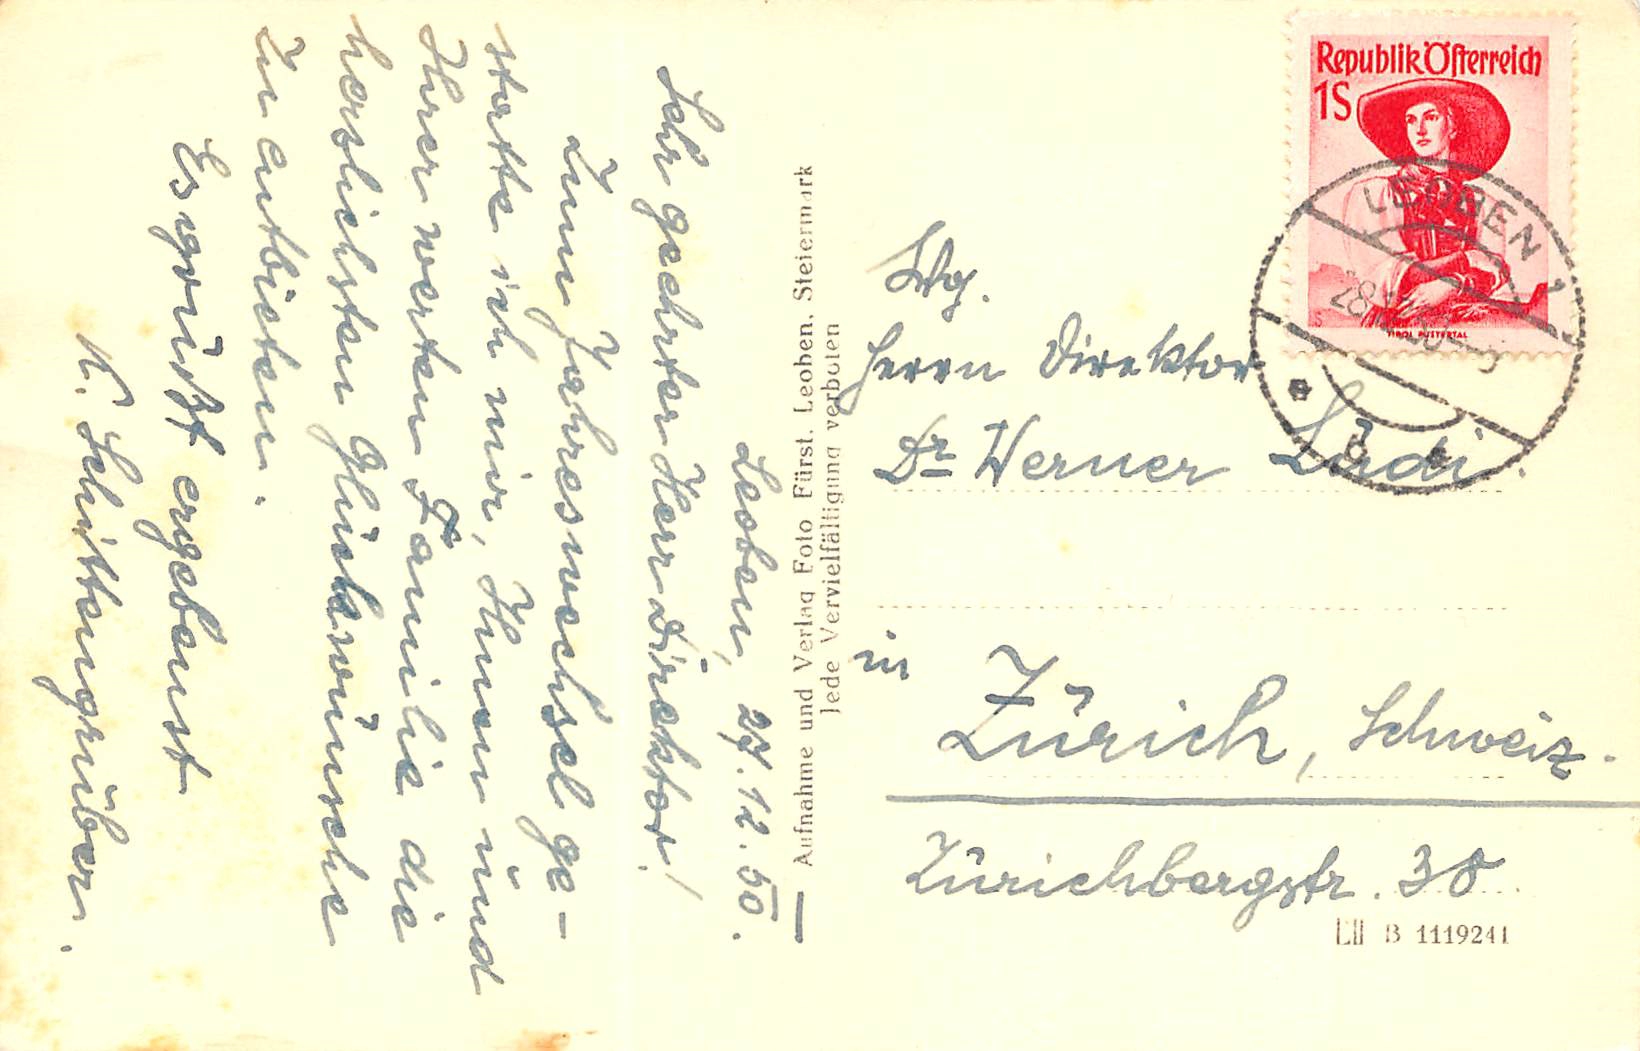 Leoben, 27.12.50.
Sehr geehrter Herr Direktor!
Zum Jahreswechsel ge-
statte ich mir, Ihnen und
Ihrer werten Familie die
herzlichsten Glückwünsche
zu entbieten.
Es grüßt ergebenst
K. Schittengruber.
Aufnahme und Verlag Foto Fürst, Leoben, Steiermark
Jede Vervielfältigung verboten
Republik Österreich
1S
TIROL PUSTERTAL
LEOBEN 1
28
Wg.
Herrn Direktor
Dr Werner Lüdi.
in
Zürich, Schweiz.
Zürichbergstr. 38
LII B 1119241